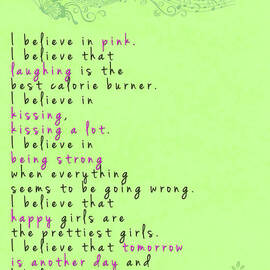 I believe in pink.
I believe that
laughing is the
best calorie burner.
I believe in
kissing,
kissing a lot.
I believe in
being strong
when everything
seems to be going wrong.
I believe that
happy girls are
the prettiest girls.
I believe that tomorrow
is another day and